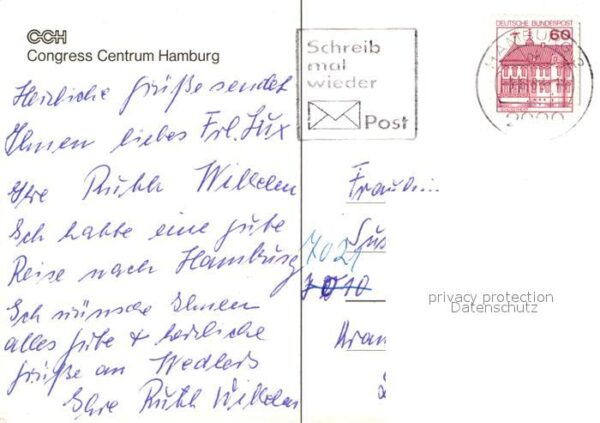 CCH
Congress Centrum Hamburg
Herzliche Grüße sendet
Ihnen liebes Frl. Lux
Ihre Ruth Wilhelm
Ich hatte eine gute
Reise nach Hamburg
Ich wünsche Ihnen
alles Gute & herzliche
Grüße an Wedlers
Ihre Ruth Wilhelm
Schreib
mal
wieder
Post
DEUTSCHE BUNDESPOST
60
HAMBURG
2000
Fräulein
7021
7010
privacy protection
Datenschutz